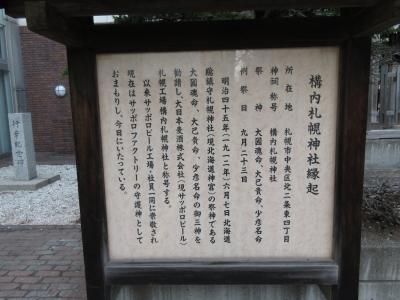 構内札幌神社縁起
所在地 札幌市中央区北二条東四丁目
神祠称号 構内札幌神社
祭神 大國魂命、大已貴命、少彦名命
例祭日 九月二十三日
明治四十五年(一九一二年)六月七日北海道
総鎮守札幌神社(現北海道神宮)の祭神である
大國魂命、大已貴命、少彦名命の御三神を
勧請し、大日本麦酒株式会社(現サッポロビール)
札幌工場構内札幌神社と称号する。
以来サッポロビール工場・社員一同に崇敬され
現在はサッポロファクトリーの守護神として
おまもりし、今日にいたっている。
行幸記念碑